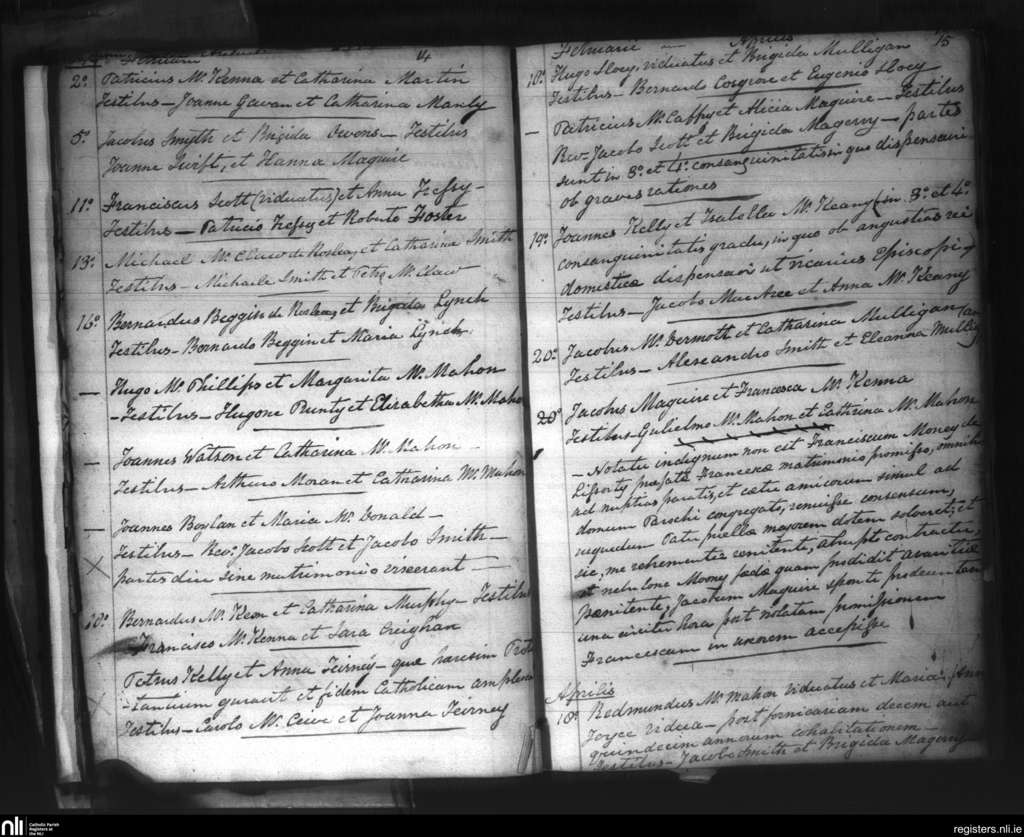 Februarii
14
2º Patricius McKenna et Catharina Martin
Testibus – Joanne Gavan et Catharina Manly
5º Jacobus Smyth et Brigida Owens – Testibus
Joanne Swift, et Hanna Maguire
11º Franciscus Scott (viduatus) et Anna
Testibus – Patricio et Roberto Foster
13º Michael McClaw de Roslea, et Catharina Smith
Testibus – Michaele Smith et McClaw
16º Bernardus Beggin de Roslea, et Brigida Lynch
Testibus – Bernardo Beggin et Maria Lynch
— Hugo McPhillips et Margarita McMahon
– Testibus – Hugone Prunty et Elizabetha McMahon
— Joannes Watson et Catharina McMahon –
Testibus – Arthuro Moran et Catharina McMahon
— Joannes Boylan et Maria McDonald –
Testibus – Revº Jacobo Scott et Jacobo Smith –
partes diu sine matrimonio vixerant —
18º Bernardus McKeon et Catharina Murphy – Testibus
Francisco McKenna et Sara Creighan
Petrus Kelly et Anna Teirney – quæ hæresim Protes
-tantium ejuravit et fidem Catholicam amplexa
Testibus – Carolo McCawe et Joanna Teirney
Februarii — Aprilis
15
18º Hugo Sloey, viduatus et Brigida Mulligan
Testibus – Bernardo Cosgrove et Eugenio Sloey
— Patricius McCaffry et Alicia Maguire – Testibus
Revº Jacobo Scott et Brigida Magerry – partes
sunt in 3º et 4º consanguinitatis in quo dispensavi
ob graves rationes
19º Joannes Kelly et Isabella McKeany (in 3º et 4º
consanguinitatis gradu, in quo ob angustias rei
domesticæ dispensavi ut vicarius Episcopi)
Testibus – Jacobo MacAree et Anna McKeany
20º Jacobus McDermott et Catharina Mulligan
Testibus – Alexandro Smith et Eleanna Mullig
20º Jacobus Maguire et Francesca McKenna
Testibus Gulielmo McMahon et Cathrina McMahon
– Notatu indignum non est Franciscum Mooney de
Lisforty præfatæ Francescæ matrimonio promisso, omnibus
ad nuptias paratis, et cœtu amicorum simul ad
domum Parochi congregato, renuisse consensum,
nequedum Pater puellæ majorem dotem solveret; et
sic, me vehementer renitente, abrupto contractu,
et nebulone Mooney fœdæ quam prodidit avaritiæ
pœnitente, Jacobum Maguire sponte prodeuntem
una circiter hora post notatam promissionem
Francescam in uxorem accepisse
Aprilis
18º Redmundus McMahon viduatus et Maria
Joyce vidua – post fornicariam decem aut
quindecim annorum cohabitationem –
Testibus – Jacobo Smith et Brigida Magerry
nli
Catholic Parish
Registers at
the NLI
registers.nli.ie